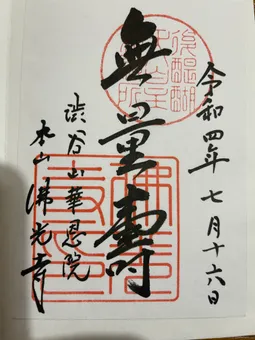 令和四年 七月十六日
後醍醐
無量壽
渋谷山華恩院
本山佛光寺